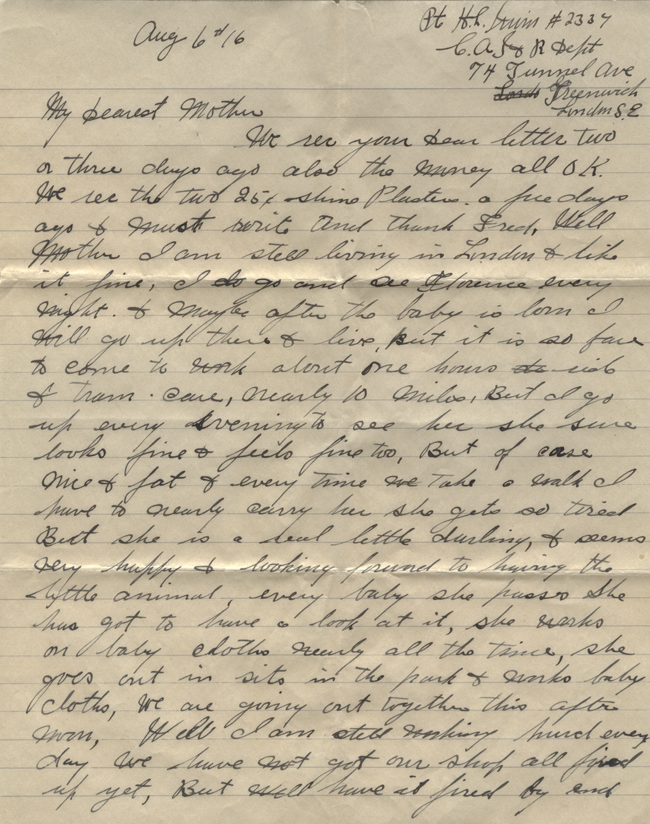 Aug 6th/16
Pt H.L. #2337
C.A.S & R Dept
74 Tunnel Ave
Greenwich
London S.E
My Dearest Mother
We rec your Dear letter two
or three days ago also the money all O.K.
We rec the two 25¢ shine Plasters. a few days
ago & must write and thank Fred, Well
Mother I am still living in London & like
it fine, I do go and see Florence every
night. & maybe after the baby is born I
will go up there & live, but it is so fare
to come to work about one hours ride
& tram. care, nearly 10 miles, But I go
up every evening to see her she sure
looks fine & feels fine too, But of corse
nice & fat & every time we take a walk I
have to nearly carry her she gets so tired
But she is a real little darling, & seems
very happy & looking forward to having the
little animal, every baby she passes she
has got to have a look at it, she works
on baby cloths nearly all the time, she
goes out in sits in the park & works baby
cloths, We are going out together this after
noon, Well I am still working hard every
day We have not got our shop all fixed
up yet, But will have it fixed by end